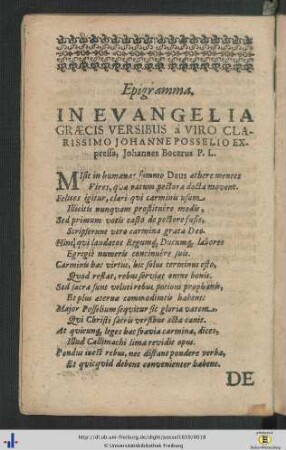 Epigramma,
IN EVANGELIA
GRÆCIS VERSIBUS à VIRO CLA-
RISSIMO JOHANNE POSSELIO EX-
pressa, Johannes Bocerus P. L.
MIsit in humanas summo Deus æthere mentes
Vires, quæ vatum pectora docta movent.
Felices igitur, clari qui carminis usum
Illicitis nunquam prostituere modis,
Sed primum votis casto de pectore fusis,
Scripserunt vero carmina grata Deo.
Hinc, qui laudatos Regumq́, Ducumq́, labores
Egregiè numeris continuere suis.
Carminis hæc virtus, hic solus terminus esto,
Quod restat, rebus serviat omne bonis.
Sed sacra sunt veluti rebus potiora prophanis,
Et plus æterna commoditatis habent:
Major Posselium seqvitur sic gloria vatem,
Qui Christi sacris versibus acta canit.
At quicunq, leges hæc svavia carmina, dices,
Illud Callimachi lima revidit opus.
Pondus inest rebus, nec distant pondere verba,
Et quicquid debent convenienter habent.
DE
http://dl.ub.uni-freiburg.de/diglit/possel1659/0018
© Universitätsbibliothek Freiburg